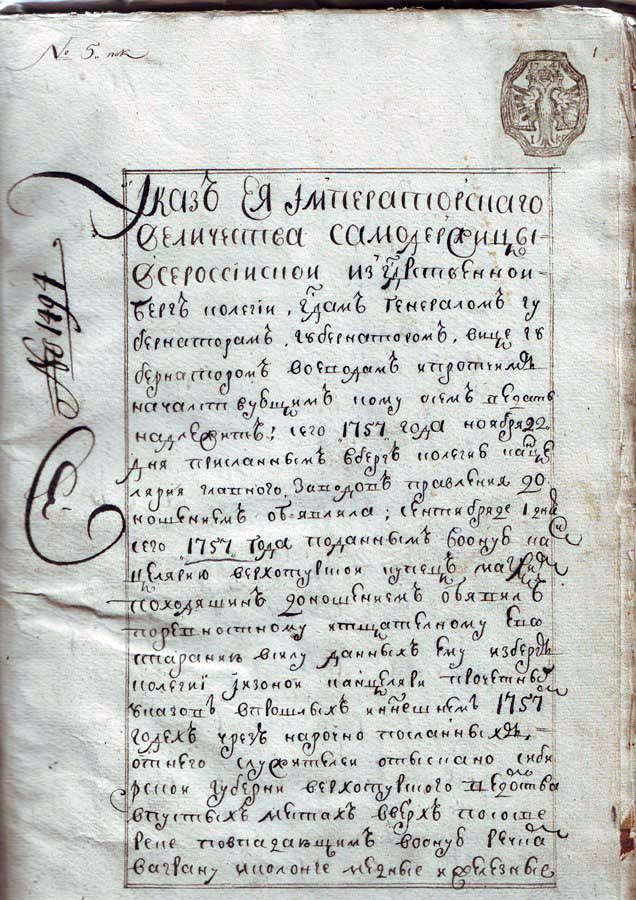 № 5. пок
1
Указъ Ея Імператорскаго
Величества самодержицы
Всероссійской из Гдрственной
бергъ колегіи, Гдамъ генераломъ гу
бернаторамъ, губернаторомъ, вице гу
бернаторомъ воеводамъ ипротчимъ
началствующимъ кому осемъ ведать
надлежитъ; сего 1757 года ноября 22
дня присланнымъ вбергъ колегию канце
лярия главного заводовъ правления до
ношениемъ объявила; сентября 1 дня
сего 1757 года поданнымъ воону ка
нцелярию верхотурской купецъ
походяшинъ доношениемъ обявилъ
поревностному итщателному ево
старанию всилу данныхъ ему избергъ
колегіи
указовъ впрошлыхъ инынешнемъ 1757
годехъ чрезъ нарочно посланныхъ
отнего служителей отыскано сиби
рской губерни верхотурского ведомства
впустыхъ местахъ вверхъ по сосве
реке повпадающимъ воную речкамъ
ваграну иколонге медные ижелезные
№ 1797